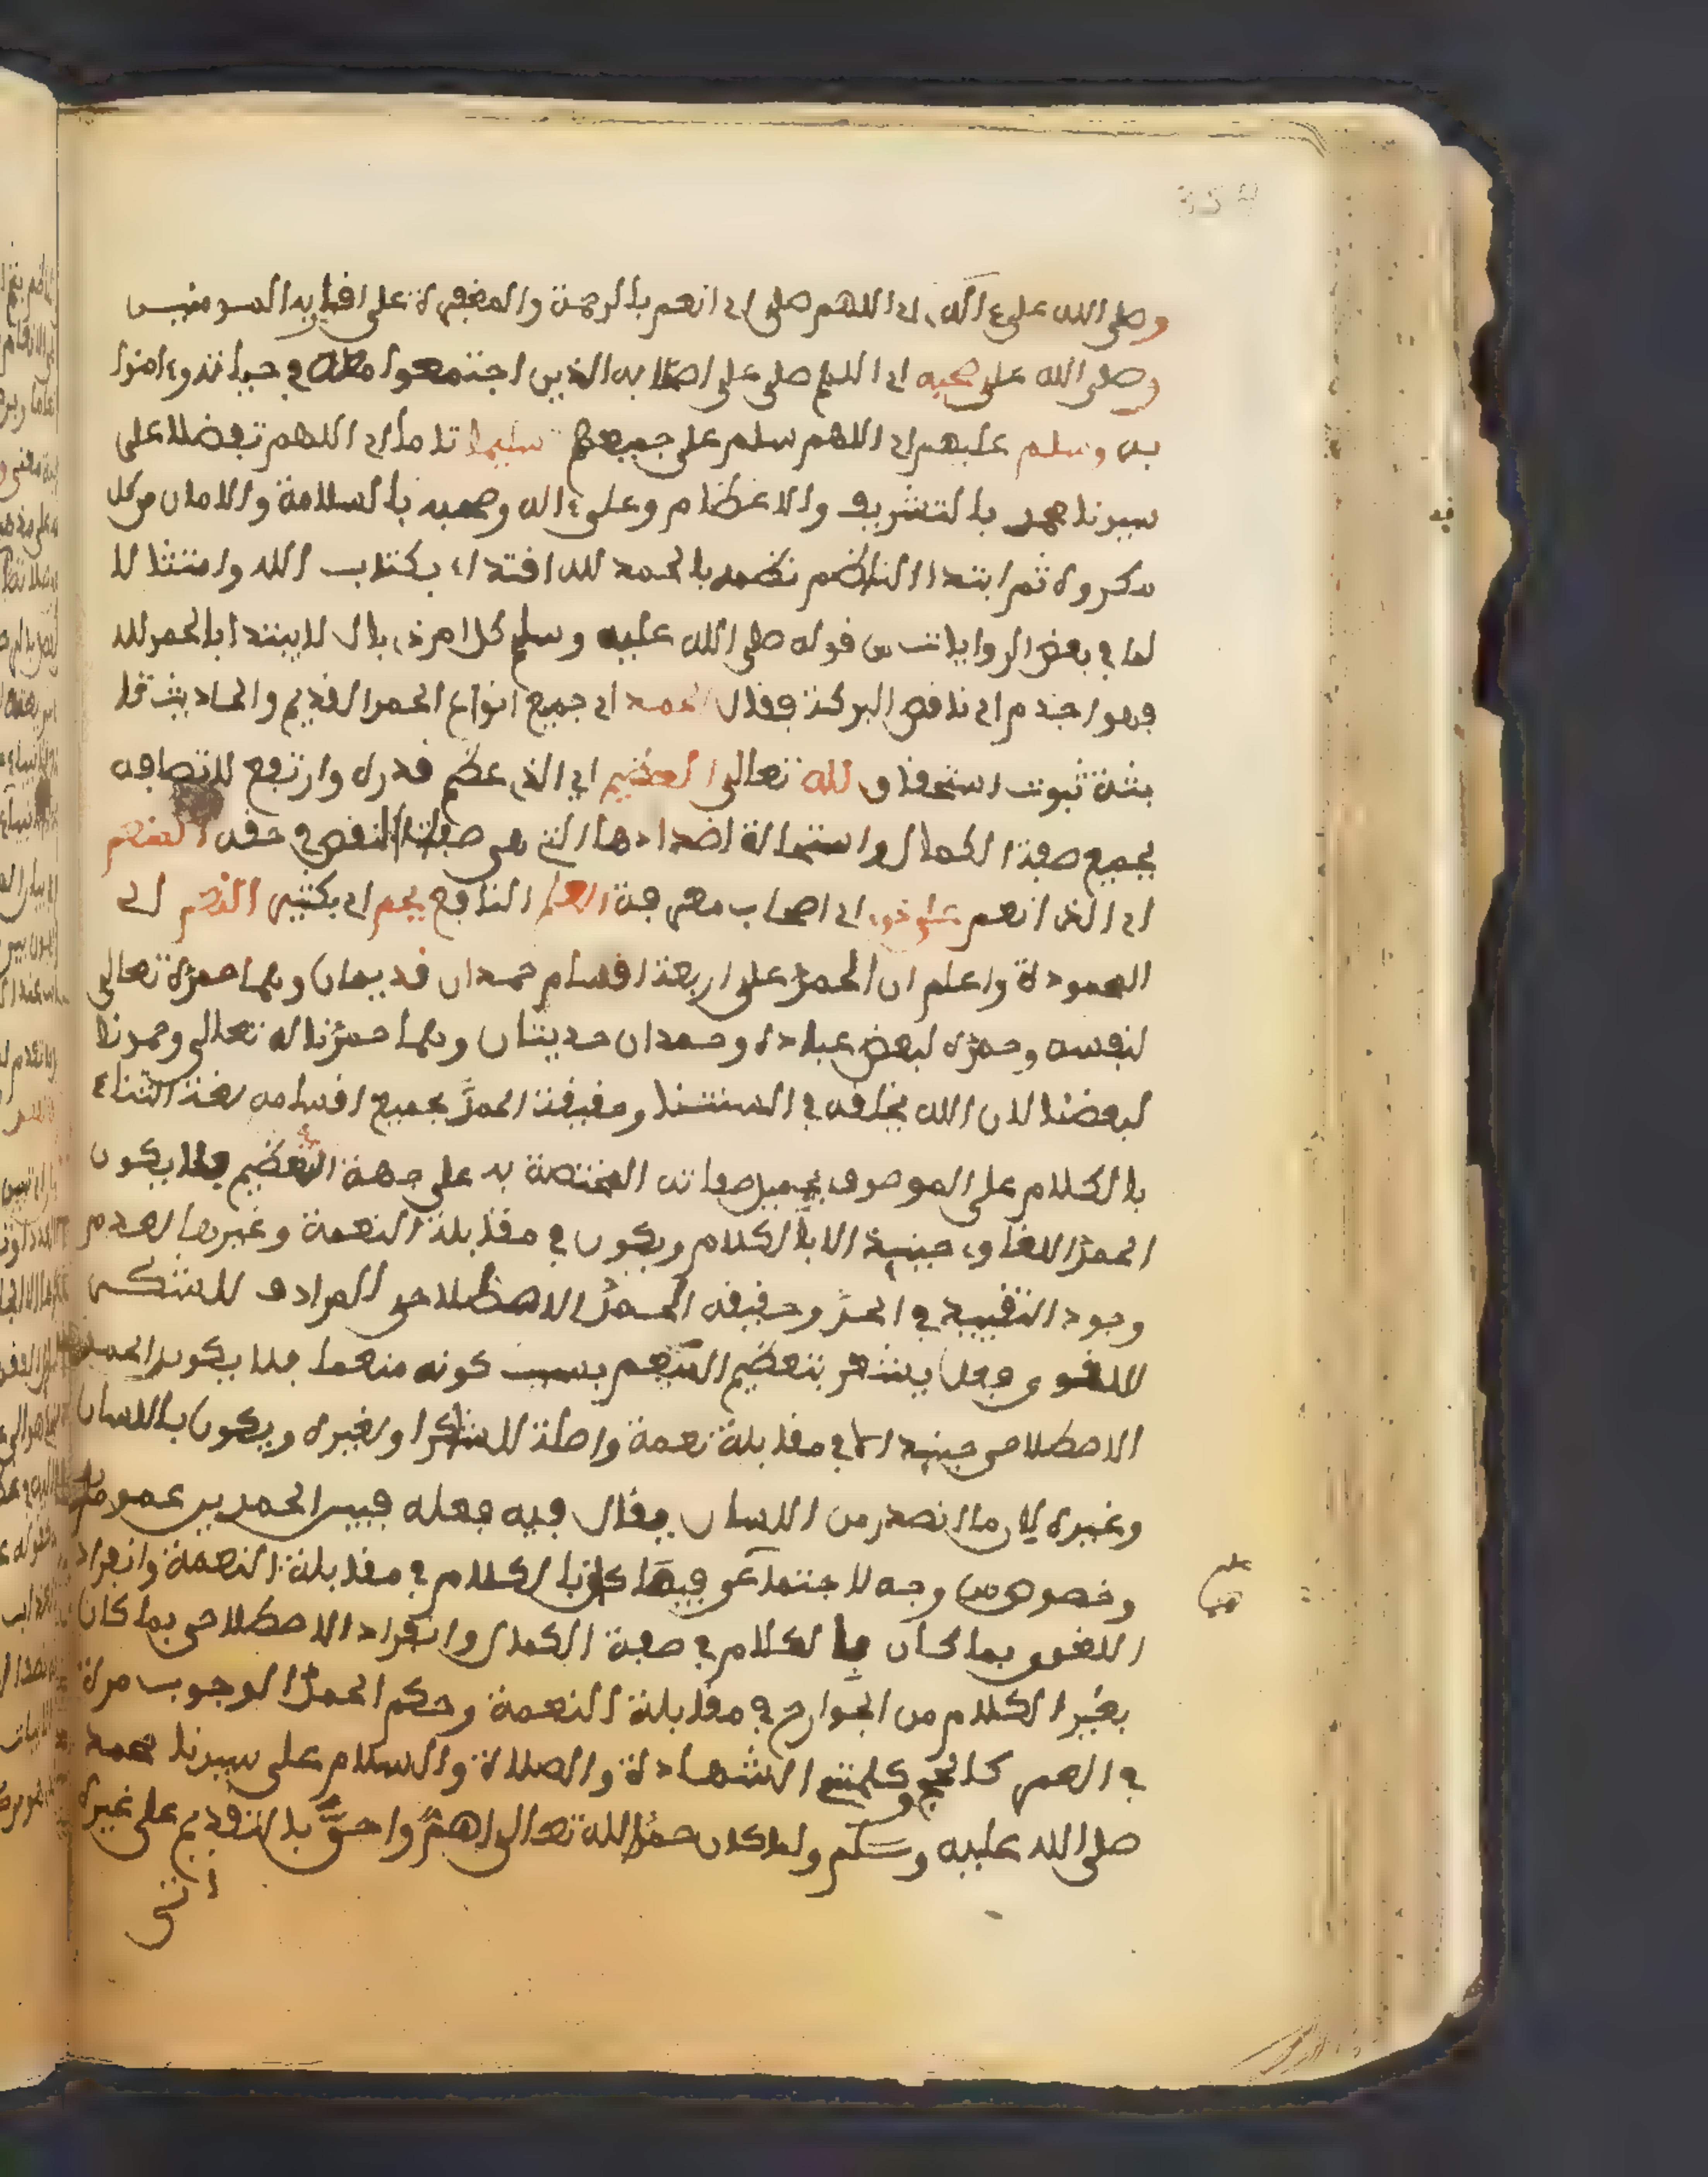 354
وصلى الله على ءاله اى اللهم صل اى انعم بالرحمة والمغفرة على افاربه المومنين
وصلى الله على صحبه اى اللهم صلى على اصحابه الذين اجتمعوا معه في حياته وءامنوا
به وسلم عليهم اى اللهم سلم على جميعهم تسليما تاما اى اللهم تفضلا على
سيدنا محمد بالتشريف والاعظام وعلى ءاله وصحبه بالسلامة والامان من كل
مكروه ثم ابتدا الناظم نظمه بالحمد لله افتداء بكتاب الله وامتثالا
لما في بعض الروايات من قوله صلى الله عليه وسلم كل امر ذى بال لا يبتدا بالحمد لله
فهو اجذم اى ناقص البركة فقال الحمد اى جميع انواع الحمد القديم والحاديث ثا
بتة ثبوت استحقاق لله تعالى العظيم اى الذى عظم قدره وارتفع لاتصافه
بجميع صفة الكمال واستحالة اضدادها التي هي صفات النقص في حقه المنعم
اى الذى انعم على ذوى اى اصحاب معرفة العلم النافع بجم اى بكثير النعم اى
المعدودة واعلم ان الحمد على اربعة اقسام حمدان قديمان وهما حمده تعالى
لنفسه وحمده لبعض عباده وحمدان حديثان وهما حمدنا له تعالى وحمدنا
لبعضنا لان الله يخلقه في السنتنا وحقيقة الحمد بجميع اقسامه لغة الثناء
بالكلام على الموصوف بجميل صفاته المختصة به على جهة التعظيم فلا يكون
الحمد اللغوي حينية الا بالكلام ويكون في مقابلة النعمة وغيرها لعدم
وجود التقييد في الحد وحقيقه الحمد الاصطلاحي المرادف للشكر
اللغوي فعل يشعر بتعظيم المنعم بسبب كونه منعما فلا يكون الحمد
الاصطلاحي حينية الا في مقابلة نعمة واصلة للشاكر او لغيره ويكون باللسان
وغيره لان ما انصدر من اللسان يقال فيه فعله فبين الحمدين عموم
وخصوص من وجه لاجتماعهما فيما كان بالكلام في مقابلة النعمة وانفراد
اللغوي بما كان بالكلام في صفة الكمال وانفراد الاصطلاحي بما كان
بغير الكلام من الجوارح في مقابلة النعمة وحكم الحمد الوجوب مرة
في العمر كالحج وكلمتي الشهادة والصلاة والسلام على سيدنا محمد
صلى الله عليه وسلم ولما كان حمد الله تعالى اهم واحق بالتقديم على غيره